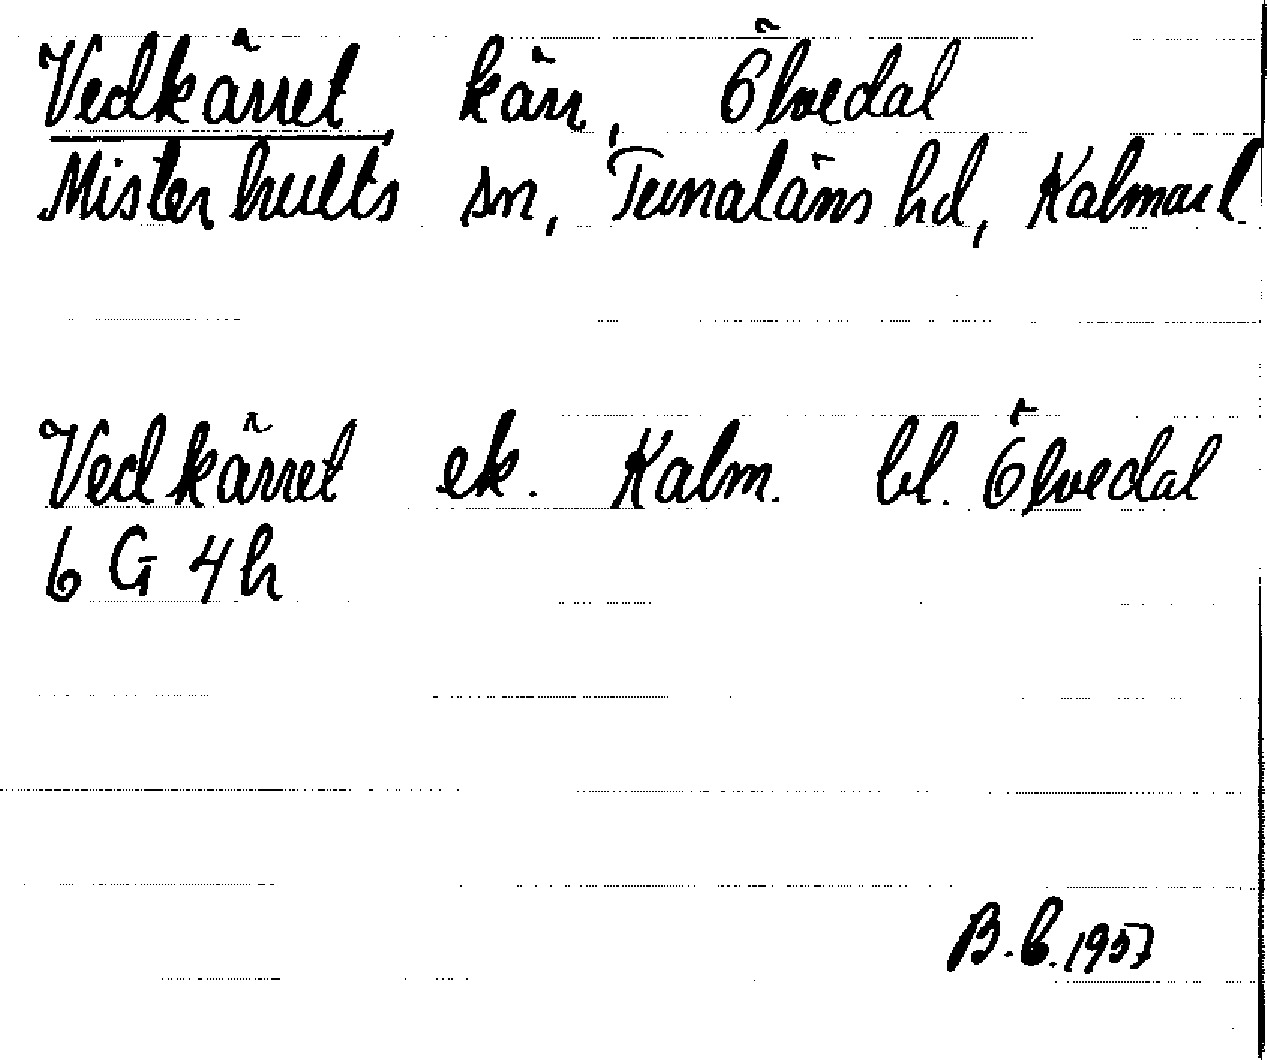 Vedkärret, kärr, Ölvedal
Misterhults sn, Tunaläns hd, Kalmar l.
Vedkärret ek. Kalm. bl. Ölvedal
6 G 4 h
B.b. 1957